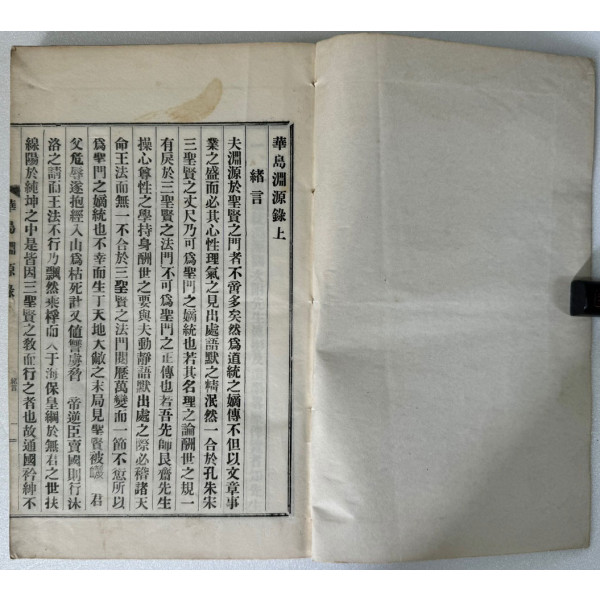 華島淵源錄上
緒言
夫淵源於聖賢之門者不啻多矣然為道統之嫡傳不但以文章事
業之盛而必其心性理氣之見出處語默之精泯然一合於孔朱宋
三聖賢之丈尺乃可為聖門之嫡統也若其名理之論酬世之規一
有戾於三聖賢之法門不可為聖門之正傳也若吾先師艮齋先生
操心尊性之學持身酬世之要與夫動靜語默出處之際必稽諸天
命王法而無一不合於三聖賢之法門閱歷萬變而一節不愈所以
為聖門之嫡統也不幸而生丁天地大敵之末局見聖賢被讒君
父危辱遂抱經入山為枯死計又值讐虜脅帝逆臣賣國則行沐
洛之請而王法不行乃飄然乘桴而入于海保皇綱於無君之世扶
線陽於純坤之中是皆因三聖賢之教而行之者也故通國衿紳不
華島淵源錄
緒言